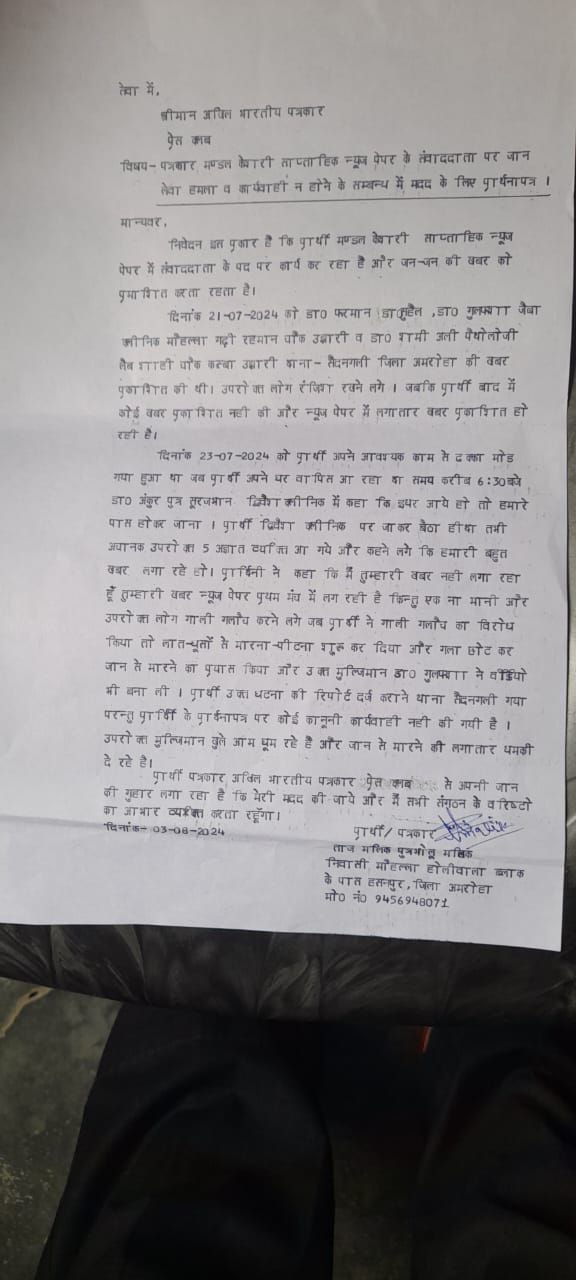 सेवा में,
श्रीमान अखिल भारतीय पत्रकार
प्रेस क्लब
विषय- पत्रकार मण्डल केसरी साप्ताहिक न्यूज पेपर के संवाददाता पर जान
लेवा हमला व कार्यवाही न होने के सम्बन्ध में मदद के लिए प्रार्थनापत्र ।
मान्यवर,
निवेदन इस प्रकार है कि प्रार्थी मण्डल केसरी साप्ताहिक न्यूज
पेपर में संवाददाता के पद पर कार्य कर रहा है और जन-जन की खबर को
प्रकाशित करता रहता है।
दिनांक 21-07-2024 को डा० फरमान डा० सुहैल , डा० गुलफ्शा जैबा
क्लीनिक मौहल्ला गढ़ी रहमान चौक उझारी व डा० शमी अली पैथोलोजी
लैब शाही चौक कस्बा उझारी थाना- सैदनगली जिला अमरोहा की खबर
प्रकाशित की थी। उपरोक्त लोग रंजिश रखने लगे । जबकि प्रार्थी बाद में
कोई खबर प्रकाशित नही की और न्यूज पेपर में लगातार खबर प्रकाशित हो
रही है।
दिनांक 23-07-2024 को प्रार्थी अपने आवश्यक काम से ढक्का मोड
गया हुआ था जब प्रार्थी अपने घर वापिस आ रहा था समय करीब 6:30बजे
डा० अंकुर पुत्र सूरजभान क्लीनिक में कहा कि इधर आये हो तो हमारे
पास होकर जाना । प्रार्थी क्लीनिक पर जाकर बैठा ही था तभी
अचानक उपरोक्त 5 अज्ञात व्यक्ति आ गये और कहने लगे कि हमारी बहुत
खबर लगा रहे हो। प्रार्थिनी ने कहा कि मैं तुम्हारी खबर नही लगा रहा
हूँ तुम्हारी खबर न्यूज पेपर प्रथम मंच में लग रही है किन्तु एक ना मानी और
उपरोक्त लोग गाली गलौच करने लगे जब प्रार्थी ने गाली गलौच का विरोध
किया तो लात-घूसों से मारना-पीटना शुरू कर दिया और गला घोट कर
जान से मारने का प्रयास किया और उक्त मुल्जिमान डा० गुलफ्शा ने वीडियो
भी बना ली । प्रार्थी उक्त घटना की रिपोर्ट दर्ज कराने थाना सैदनगली गया
परन्तु प्रार्थी के प्रार्थनापत्र पर कोई कानूनी कार्यवाही नही की गयी है ।
उपरोक्त मुल्जिमान खुले आम घूम रहे है और जान से मारने की लगातार धमकी
दे रहे है।
प्रार्थी पत्रकार अखिल भारतीय पत्रकार प्रेस क्लब से अपनी जान
की गुहार लगा रहा है कि मेरी मदद की जाये और मैं सभी संगठन के वरिष्टो
का आभार व्यक्ति करता रहूंगा।
दिनांक- 03-08-2024
प्रार्थी/ पत्रकार
ताज मलिक पुत्र भोलू मलिक
निवासी मौहल्ला होलीवाला ब्लाक
के पास हसनपुर, जिला अमरोहा
मो० नं० 9456948071